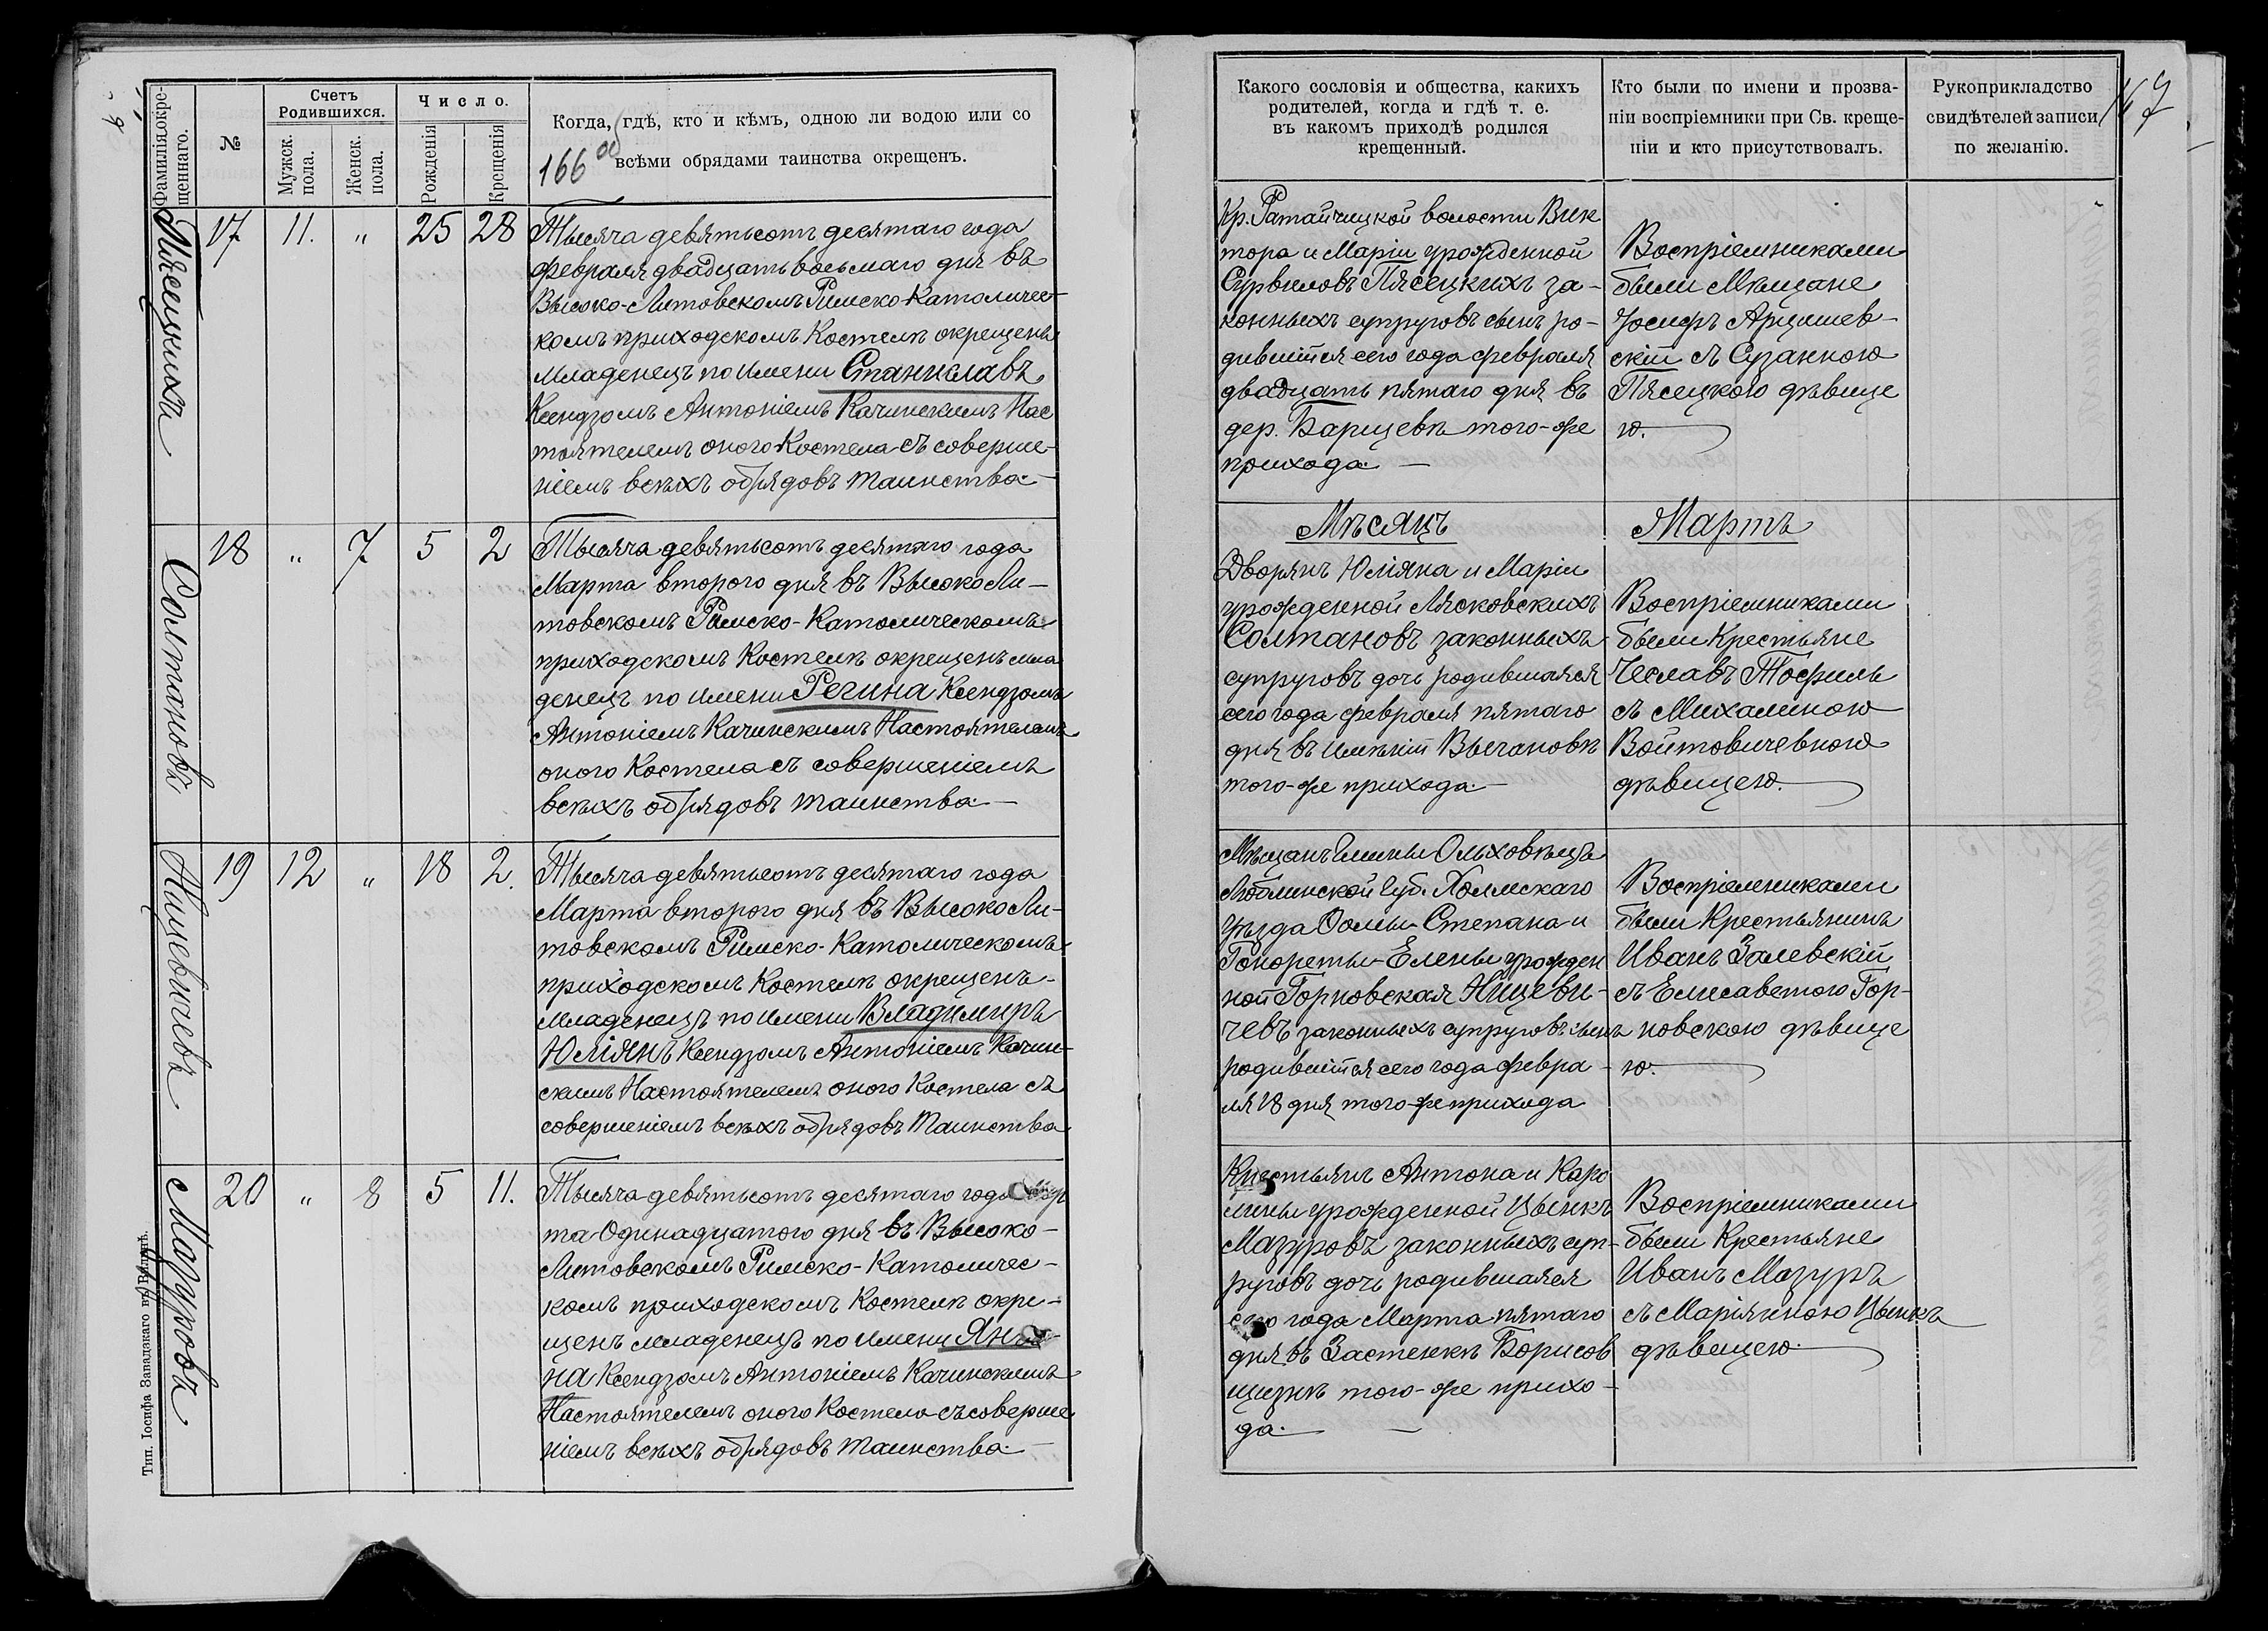 Фамилія окре-
щеннаго.
№
Счетъ
Родившихся.
Мужск.
пола.
Женск.
пола.
Число.
Рожденія
Крещенія
Когда, гдѣ, кто и кѣмъ, одною ли водою или со
всѣми обрядами таинства окрещенъ.
166 об
Пясецкихъ
17
11.
"
25
28
Тысяча девятьсотъ десятаго года
февраля двадцать восьмаго дня въ
Высоко-Литовскомъ Римско-Католичес-
комъ приходскомъ Костелѣ окрещенъ
младенецъ по имени Станиславъ
Ксендзомъ Антоніемъ Качинскимъ Нас
тоятелемъ оного Костела съ соверше-
ніемъ всѣхъ обрядовъ таинства.—
Солтановъ
18
"
7
5
2
Тысяча девятьсотъ десятаго года
Марта второго дня въ Высоко Ли-
товскомъ Римско-Католическомъ
приходскомъ Костелѣ окрещенъ мла
денецъ по имени Регина Ксендзомъ
Антоніемъ Качинскимъ Настоятелемъ
оного Костела съ совершеніемъ
всѣхъ обрядовъ таинства.—
Ницевичевъ
19
12
"
18
2.
Тысяча девятьсотъ десятаго года
Марта второго дня въ Высоко Ли-
товскомъ Римско-Католическомъ
приходскомъ Костелѣ окрещенъ-
младенецъ по имени Владимиръ
Юліянъ Ксендзомъ Антоніемъ Качин-
скимъ Настоятелемъ оного Костела съ
совершеніемъ всѣхъ обрядовъ Таинства
Мазуровъ
20
"
8
5
11.
Тысяча девятьсотъ десятаго года Мар
та Одинадцатого дня въ Высоко-
Литовскомъ Римско-Католичес-
комъ приходскомъ Костелѣ окре-
щенъ младенецъ по имени
на Ксендзомъ Антоніемъ Качинскимъ
Настоятелемъ оного Костела съ соверше
ніемъ всѣхъ обрядовъ таинства.—
Тип. Іосифа Завадзкаго въ Вильнѣ.
Какого сословія и общества, какихъ
родителей, когда и гдѣ т. е.
въ какомъ приходѣ родился
крещенный.
Кто были по имени и прозва-
ніи воспріемники при Св. креще-
ніи и кто присутствовалъ.
Рукоприкладство
свидѣтелей записи
по желанію.
167
Кр. Ратайчицкой волости Вик
тора и Маріи урожденной
Сурвиловъ Пясецкихъ за-
конныхъ супруговъ сынъ ро-
дившійся сего года февраля
двадцать пятаго дня въ
дер. Барщевѣ того-же
прихода.—
Воспріемниками
были Мѣщане
Іосифъ Арцишев-
скій съ Сузанною
Пясецкою дѣвице
ю.
Мѣсяцъ
Мартъ
Дворянъ Юліяна и Маріи
урожденной Лясковскихъ
Солтановъ законныхъ
супруговъ дочь родившаяся
сего года февраля пятаго
дня въ имѣніи Вычановѣ
того-же прихода.—
Воспріемниками
были Крестьяне
Чеславъ Тофиль
съ Михалиною
Войтовичевною
дѣвицею.
Мѣщанъ Гмины Ольховѣцъ
Люблинской Губ. Холмскаго
уѣзда Фомы-Степана и
Гонореты-Елены урожден
ной Горновская Ницеви-
чевъ законныхъ супруговъ сынъ
родившійся сего года февра-
ля 18 дня того-же прихода
Воспріемниками
были Крестьянинъ
Иванъ Залевскій
съ Елисаветою Гор-
новскою дѣвице
ю.
Крестьянъ Антона и Каро
лины урожденной Цынкъ
Мазуровъ законныхъ суп-
руговъ дочь родившаяся
сего года Марта пятаго
дня въ Застенкѣ Борисов
щизнѣ того-же прихо-
да.—
Воспріемниками
были Крестьяне
Иванъ Мазуръ
съ Маріянною Цынкъ
дѣвицею.